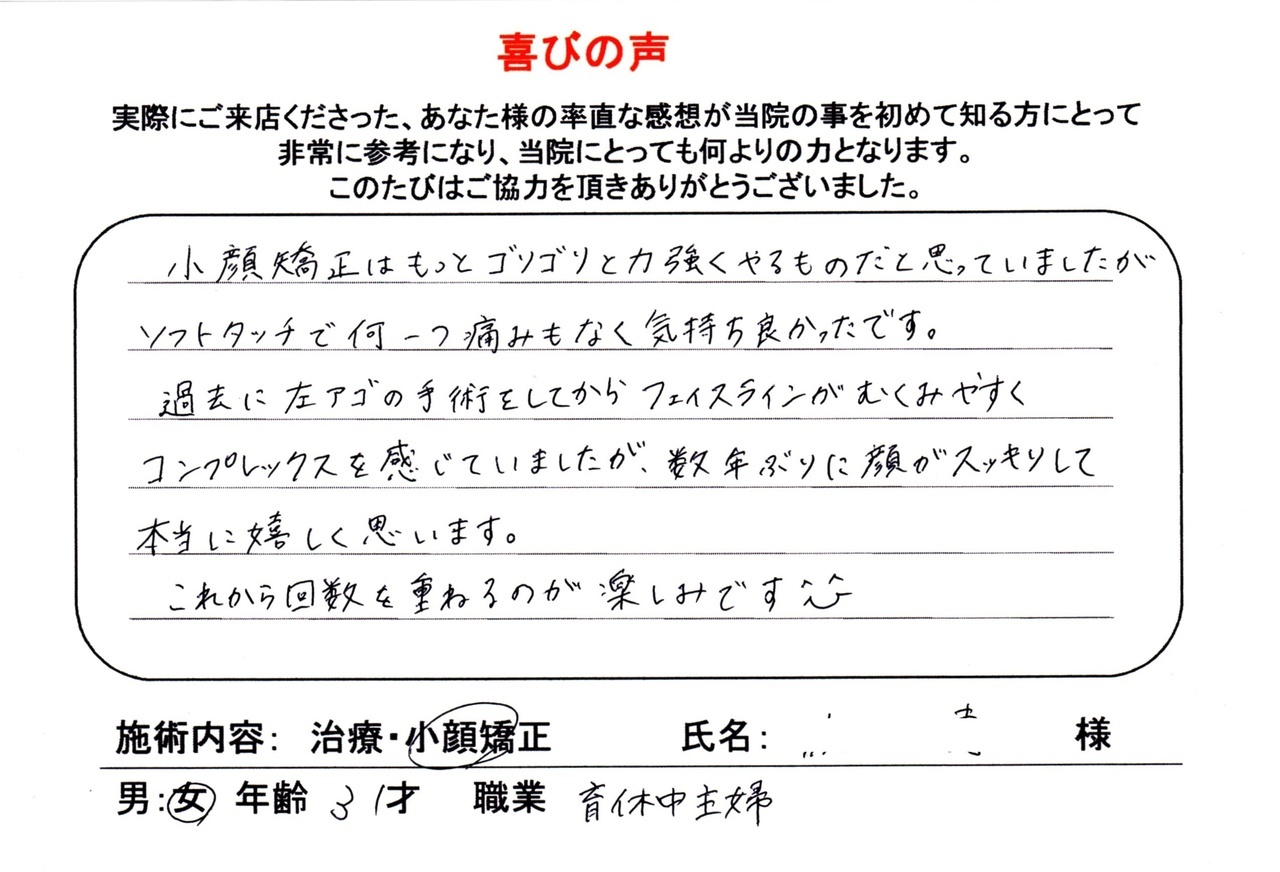 喜びの声
実際にご来店くださった、あなた様の率直な感想が当院の事を初めて知る方にとって
非常に参考になり、当院にとっても何よりの力となります。
このたびはご協力を頂きありがとうございました。
小顔矯正はもっとゴリゴリと力強くやるものだと思っていましたが
ソフトタッチで何一つ痛みもなく気持ち良かったです。
過去に左アゴの手術をしてからフェイスラインがむくみやすく
コンプレックスを感じていましたが、数年ぶりに顔がスッキリして
本当に嬉しく思います。
これから回数を重ねるのが楽しみです
施術内容： 治療・小顔矯正 氏名： 様
男：女 年齢 31才 職業 育休中主婦